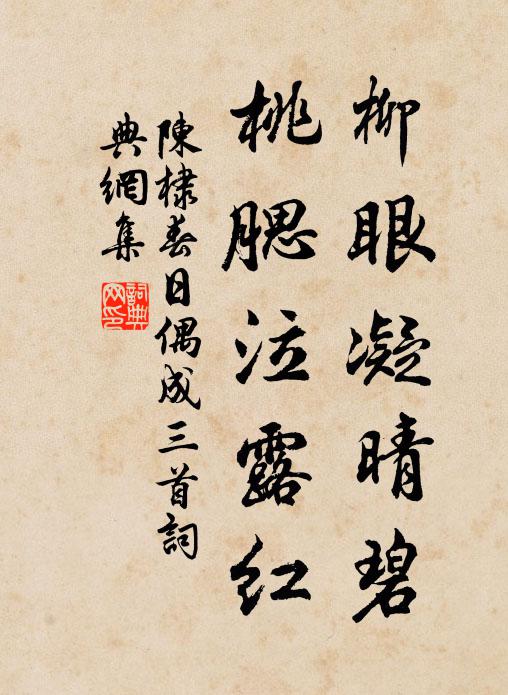 柳眼凝晴碧
桃腮泣露紅
陳棣春日偶成三首詞
典網集
詞典網印